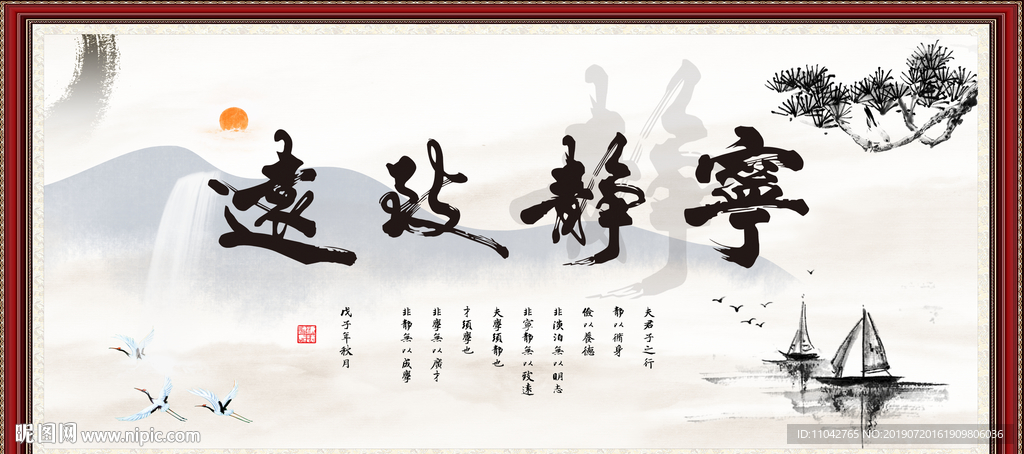 寧靜致遠
夫君子之行
靜以脩身
儉以養德
非淡泊無以明志
非寧靜無以致遠
夫學須靜也
才須學也
非學無以廣才
非靜無以成學
戊子年秋月
昵图网 www.nipic.com
ID:11042765 NO:20190720161909806036